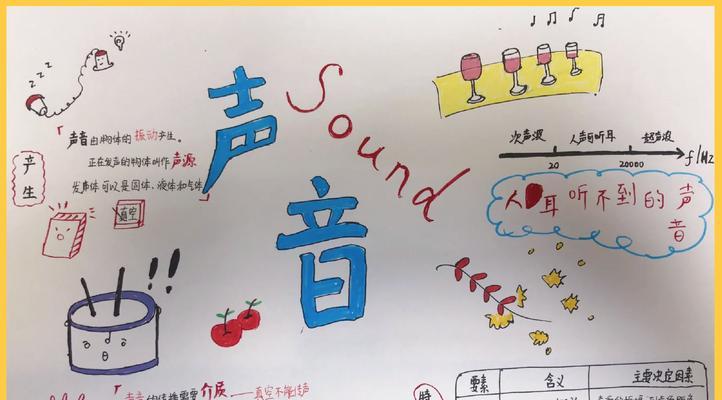 z z z
声
Sound
声音由物体的振动产生。
正在发声的物体叫作声源
发声体可以是固体、液体和气体
产生
真空
音
!!
次声波 人耳可听耳 超声波
20 20000 f/Hz
人耳听不到的声
音
声音的传播需要介质——真空不能传声
要素 含义 主要决定因素
特